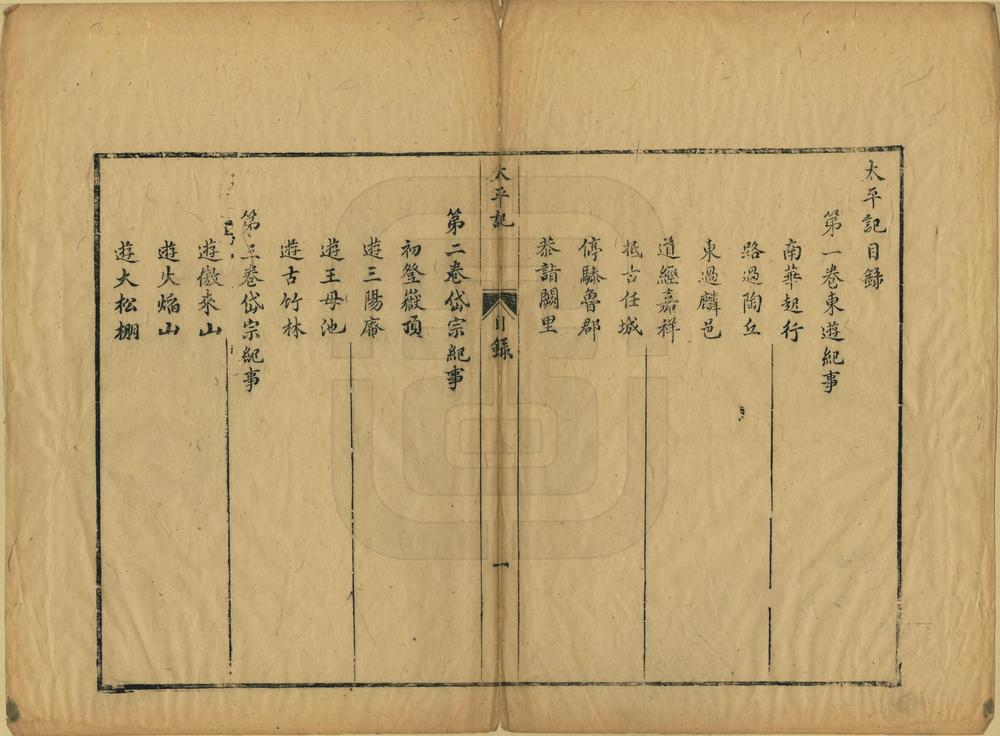 太平記目錄
第一卷東遊紀事
南華起行
路過陶丘
東過麟邑
道經嘉祥
抵古任城
停驂魯郡
恭詣闕里
太平記
目錄
一
第二卷岱宗紀事
初登嶽頂
遊三陽庵
遊王母池
遊古竹林
第三卷岱宗紀事
遊傲來山
遊火焰山
遊大松棚